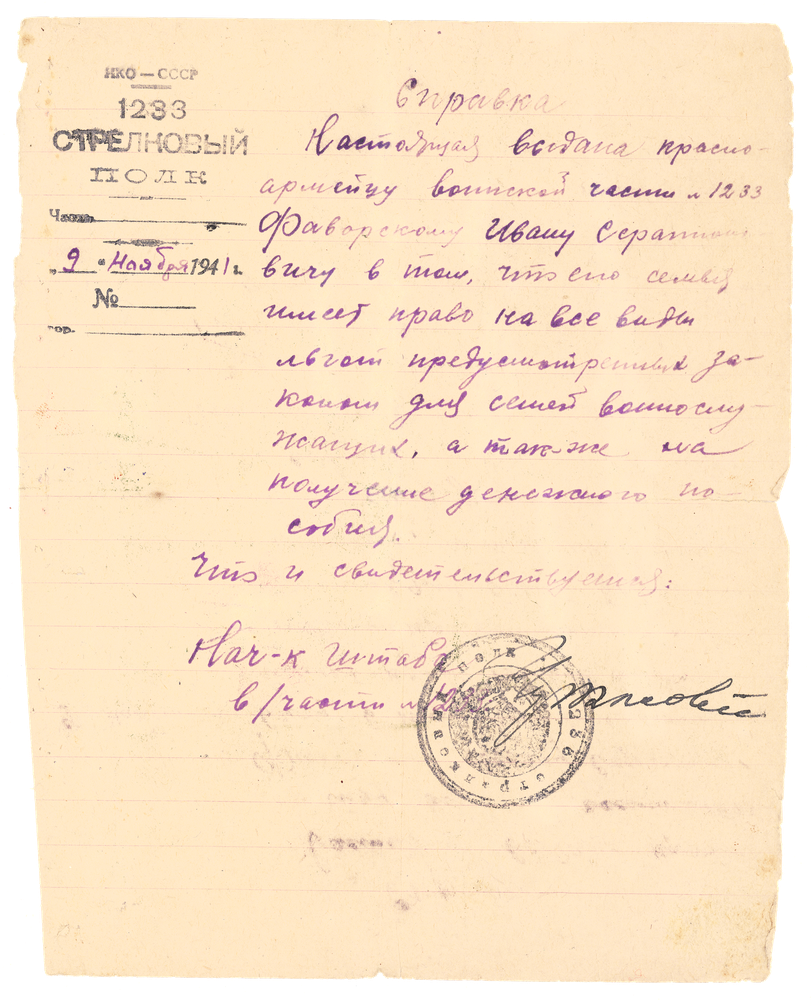 НКО — СССР
1233
СТРЕЛКОВЫЙ
ПОЛК
Часть
„ 9 " Ноября 1941 г.
№
гор.
Справка
Настоящая выдана красно-
армейцу воинской части № 1233
Фаворскому Ивану Серапионо-
вичу в том, что его семья
имеет право на все виды
льгот предусмотренных за-
коном для семей военнослу-
жащих, а так-же на
получение денежного по-
собия.
Что и свидетельствуется:
Нач-к Штаба
в/части №
1233 стрелковый полк